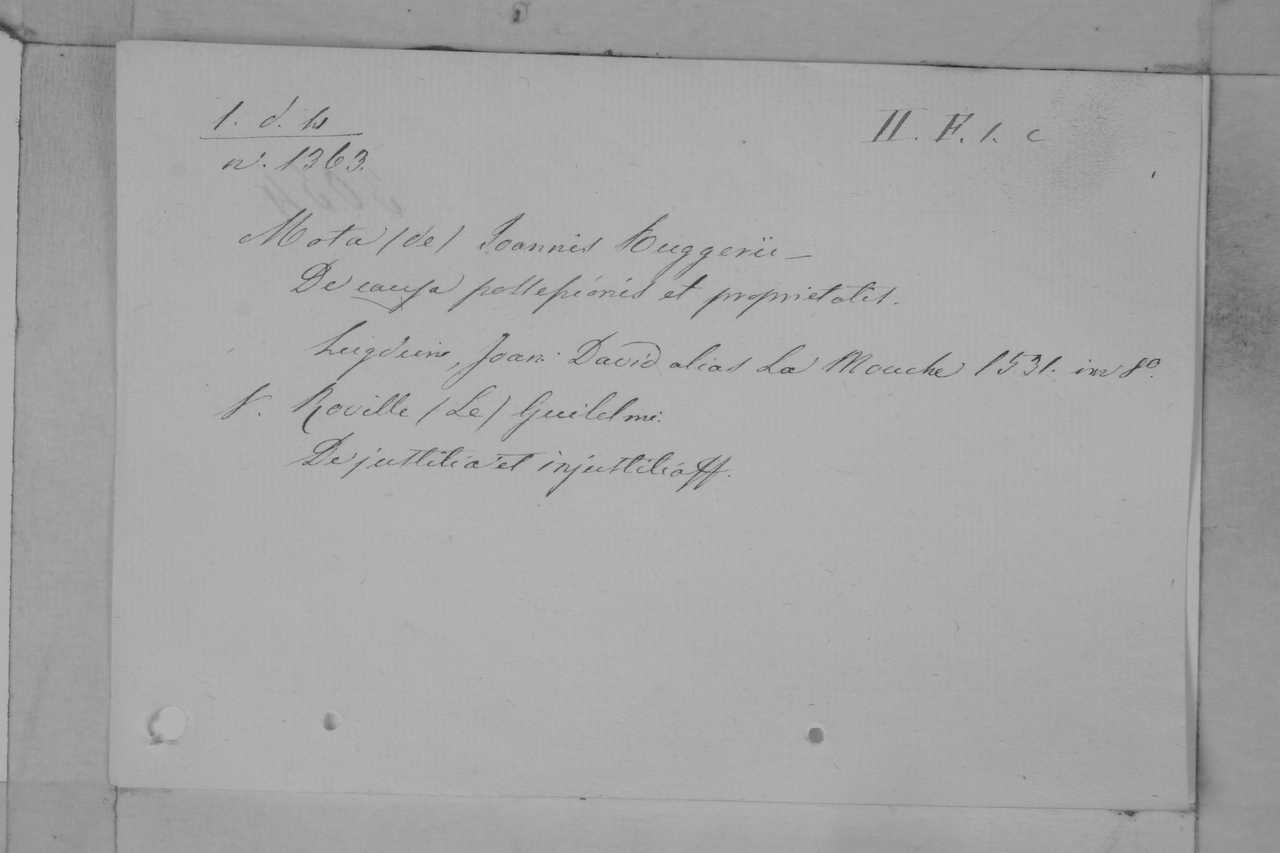 1. d. b
II. F. 1. c
n. 1363.
Mota (de) Joannis Ruggerii —
De causa possessionis et proprietatis.
Lugduni, Joan: David alias La Mouche 1531. in 8º.
V. Roville (Le) Guilelmi.
De justitia et injustitia ff.